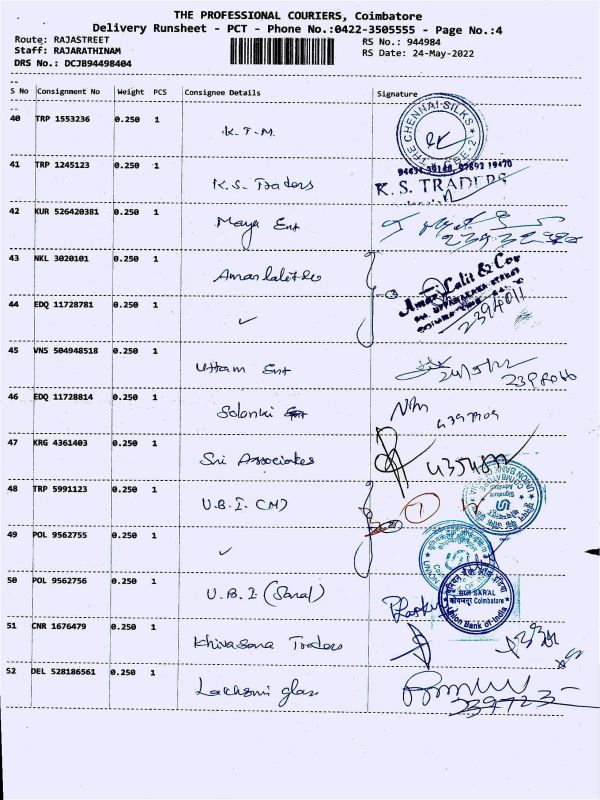 THE PROFESSIONAL COURIERS, Coimbatore
Delivery Runsheet - PCT - Phone No.:0422-3505555 - Page No.:4
Route: RAJASTREET
RS No.: 944984
Staff: RAJARATHINAM
RS Date: 24-May-2022
DRS No.: DCJB94498404
S No Consignment No Weight PCS Consignee Details Signature
40 TRP 1553236 0.250 1 K.T.M. THE CHENNAI SILKS CBE-2
41 TRP 1245123 0.250 1 K.S. Traders K. S. TRADERS
42 KUR 526420381 0.250 1 Maya Ent
43 NKL 3020101 0.250 1 Amarlalit &co Amar Lalit & Co
44 EDQ 11728781 0.250 1 ✓
45 VNS 504948518 0.250 1 Uttam Ent 24/5/22
46 EDQ 11728814 0.250 1 Solanki
47 KRG 4361403 0.250 1 Sri Associates
48 TRP 5991123 0.250 1 U.B.I. (M)
49 POL 9562755 0.250 1 ✓
50 POL 9562756 0.250 1 U.B.I (Saral) SARAL Coimbatore Union Bank of India
51 CNR 1676479 0.250 1 Khivasana Traders
52 DEL 528186561 0.250 1 Lakshmi glass 239723